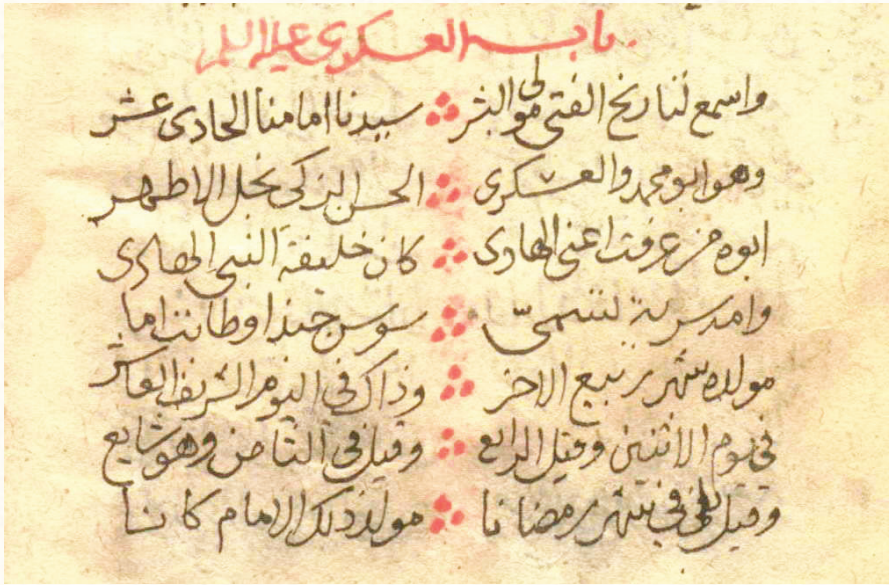 باب العسكري عليه السلام
واسمع لتاريخ الفتى مولى البشر ∴ سيدنا امامنا الحادى عشر
وهو ابو محمد والعسكرى ∴ الحسن الزكى نجل الاطهر
ابوه من عرفت اعنى الهادى ∴ كان خليفة النبى الهادى
وامه سرية تسمى ∴ سوسن حبذا وطابت اما
مولده شهر ربيع الاخر ∴ وذاك فى اليوم الشريف العاشر
فى يوم الاثنين وقيل الرابع ∴ وقيل فى الثامن وهو شايع
وقيل بل فى شهر رمضانا ∴ مولد ذلك الامام كانا